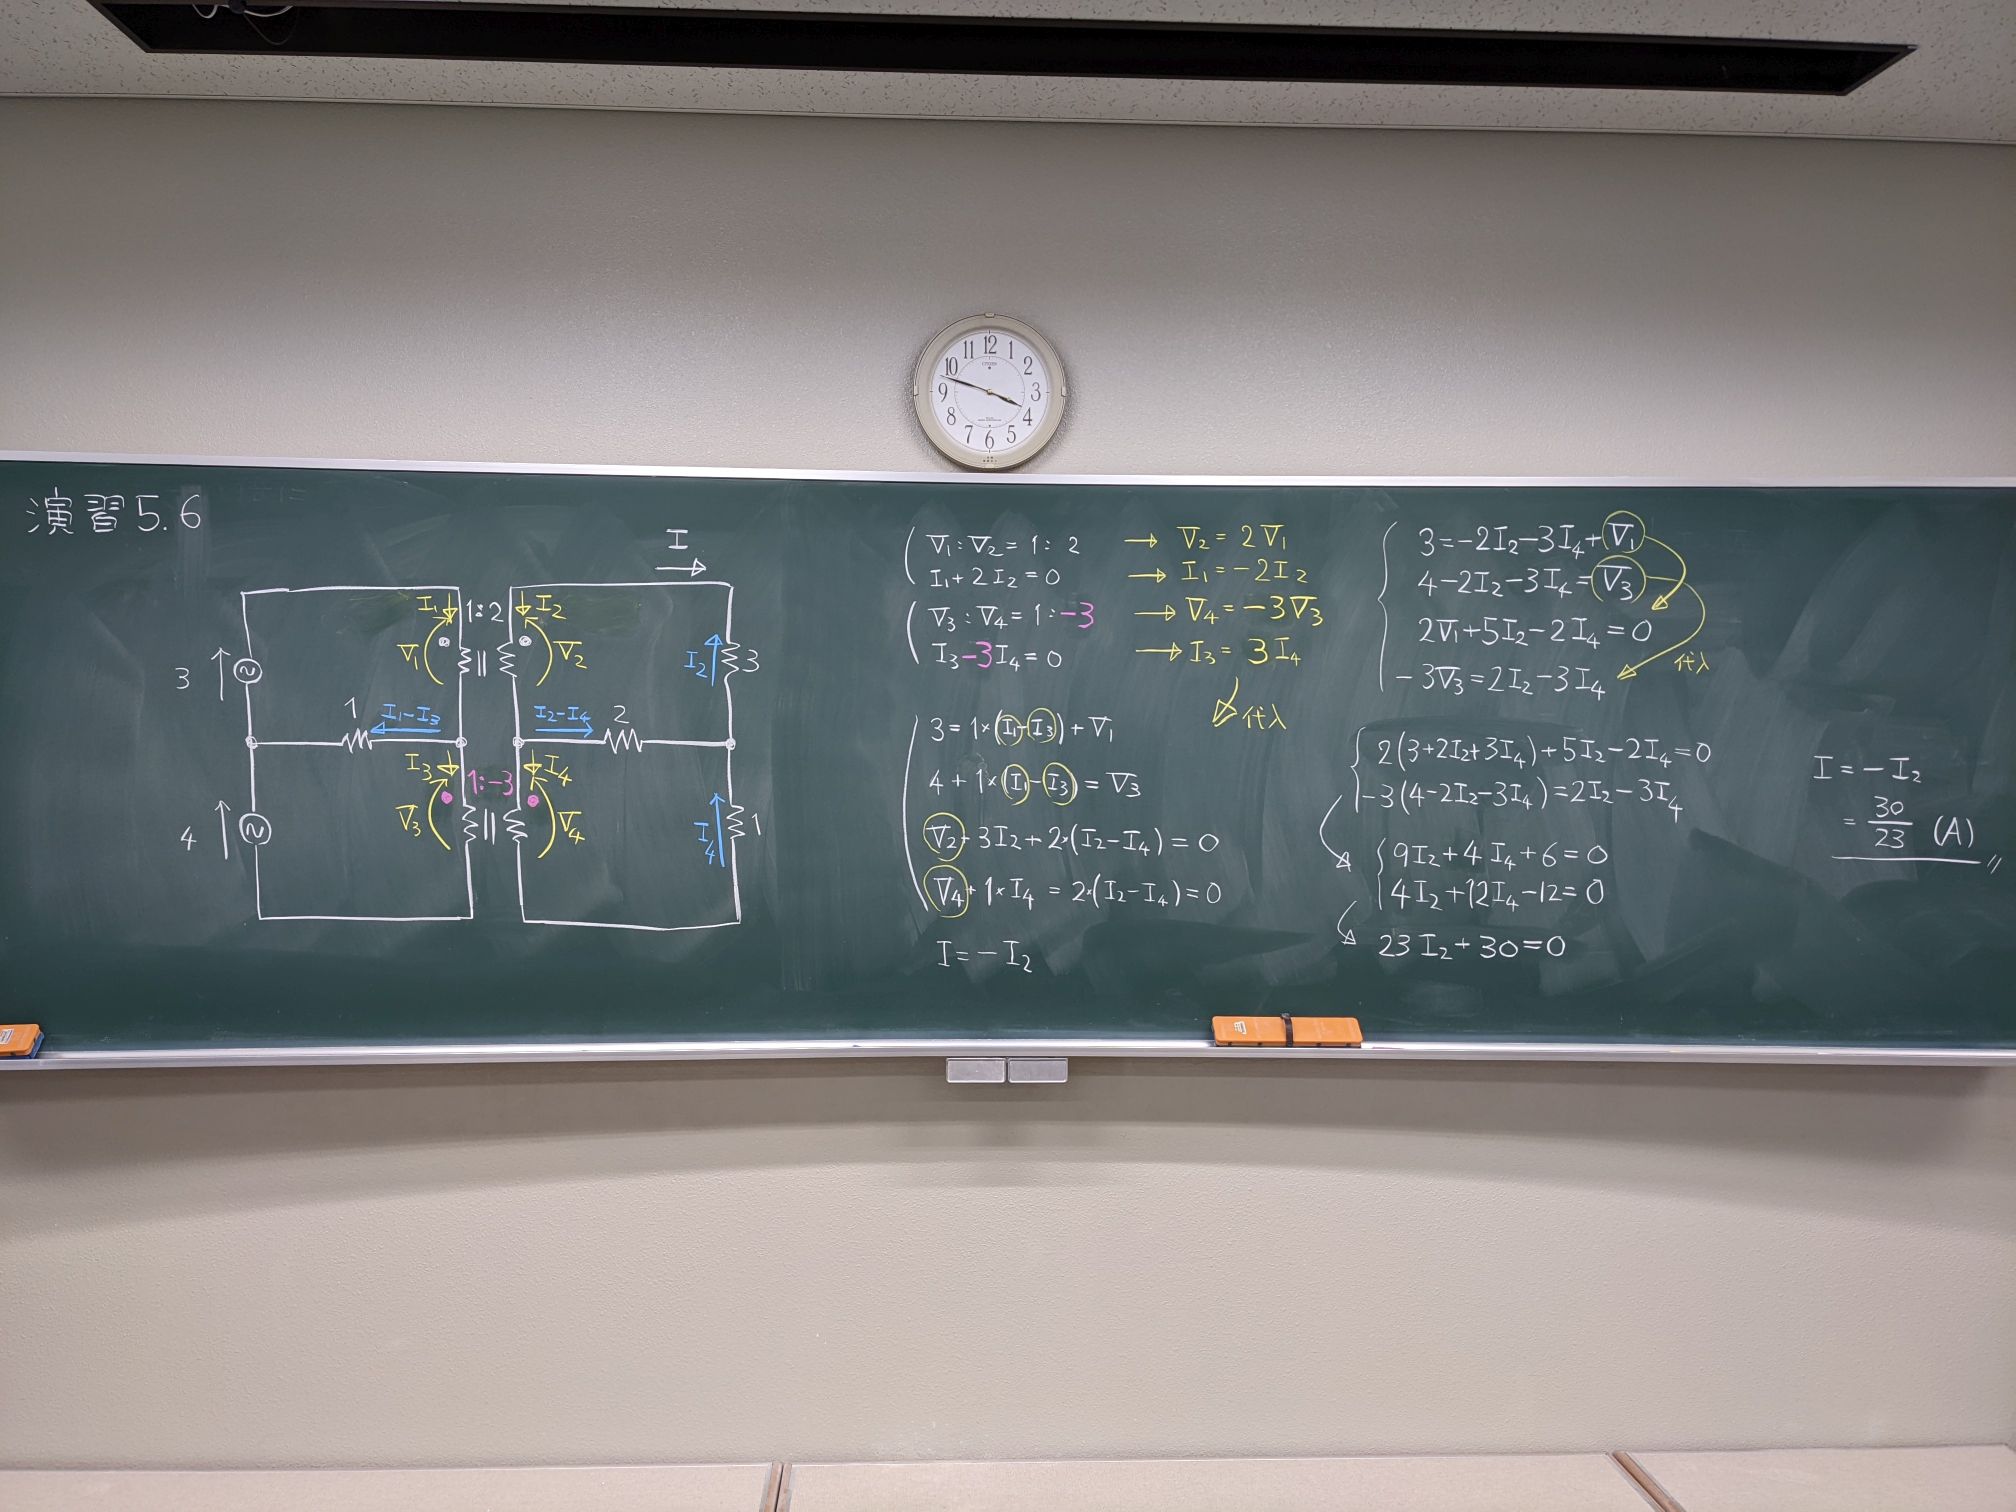 12
1
2
3
4
5
6
7
8
9
10
11
CITIZEN
演習5.6
I
I₁
1:2
I₂
V₁
V₂
I₂
3
3
1
I₁-I₃
I₂-I₄
2
I₃
1:-3
I₄
V₃
V₄
I₄
1
4
V₁:V₂=1:2 → V₂=2V₁
I₁+2I₂=0 → I₁=-2I₂
V₃:V₄=1:-3 → V₄=-3V₃
I₃-3I₄=0 → I₃=3I₄
代入
3=1×(I₁-I₃)+V₁
4+1×(I₁-I₃)=V₃
V₂+3I₂+2×(I₂-I₄)=0
V₄+1×I₄=2×(I₂-I₄)=0
I=-I₂
3=-2I₂-3I₄+V₁
4-2I₂-3I₄=V₃
2V₁+5I₂-2I₄=0
-3V₃=2I₂-3I₄
代入
2(3+2I₂+3I₄)+5I₂-2I₄=0
-3(4-2I₂-3I₄)=2I₂-3I₄
9I₂+4I₄+6=0
4I₂+12I₄-12=0
23I₂+30=0
I=-I₂
=30/23 (A)